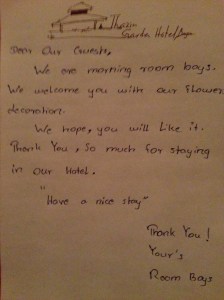 Thazin
Garden Hotel, Bagan
Dear Our Guests,
We are morning room boys.
We welcome you with our flower
decoration.
We hope, you will like it.
Thank You, So much for staying
in our Hotel.
"Have a nice stay"
Thank You!
Your's
Room Boys